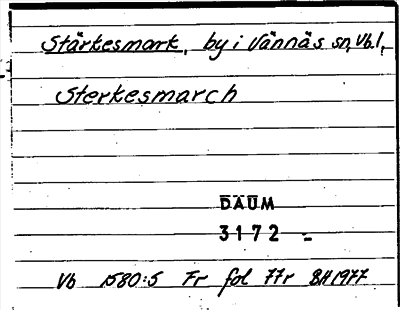 Stärkesmark, by i Vännäs sn, Vb.l,
Sterkesmarch
DAUM
3172 -
Vb 1580:5 Fr fol 77r BH 1977